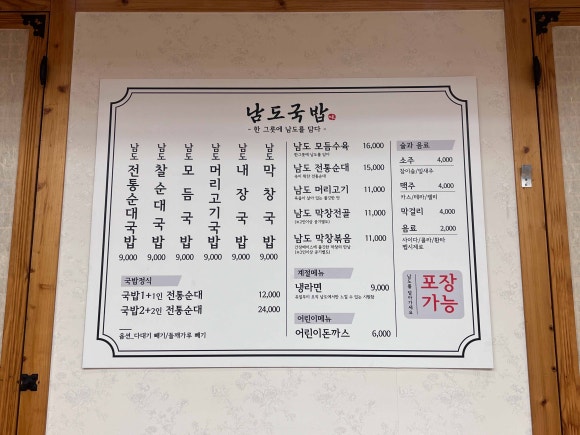 남도국밥
- 한 그릇에 남도를 담다 -
남도 전통순대국밥 9,000
남도 찰순대국밥 9,000
남도 모듬국밥 9,000
남도 머리고기국밥 9,000
남도 내장국밥 9,000
남도 막창국밥 9,000
국밥정식
국밥1+1인 전통순대 12,000
국밥2+2인 전통순대 24,000
옵션_다대기 빼기/들깨가루 빼기
남도 모듬수육 16,000
한그릇에 남도를 담다
남도 전통순대 15,000
남도 머리고기 11,000
남도 막창전골 11,000
(※2인이상 공기별도)
남도 막창볶음 11,000
(※2인이상 공기별도)
계절메뉴
냉라면 9,000
어린이메뉴
어린이돈까스 6,000
술과 음료
소주 4,000
참이슬/잎새주
맥주 4,000
카스/테라/켈리
막걸리 4,000
음료 2,000
사이다/콜라/환타
웰치제로
남도를 담아가세요
포장
가능